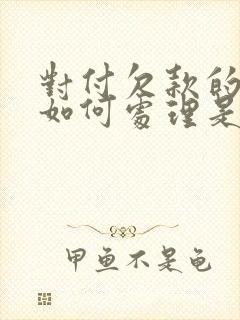 對付欠款的
如何處理是
甲鱼不是龟